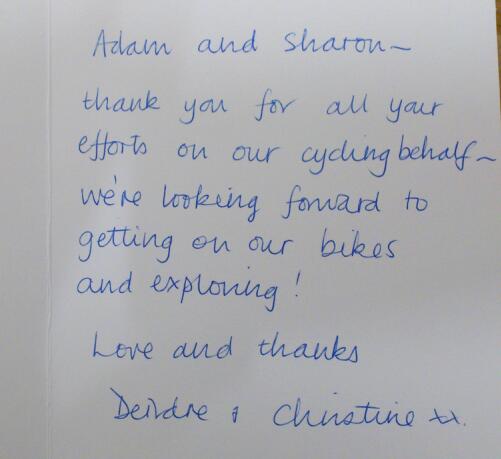 Adam and Sharon~
thank you for all your
efforts on our cycling behalf~
we're looking forward to
getting on our bikes
and exploring!
Love and thanks
Deirdre & Christine xx.